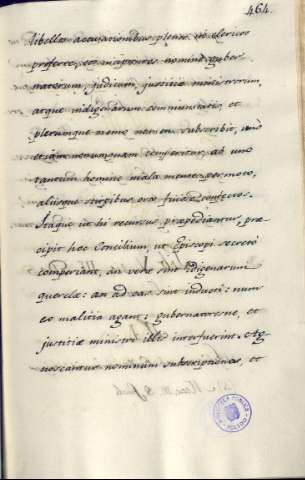 464.
libellos accusationibus plenos in clericos
proferre, eos inscriptores nomine guber
natorum, judicum, justitiæ ministrorum,
atque indigenarum communitatis, et
plerumque nemo nomen subscribit, imò
etiam nonnunquam comperitur, ab uno
tantum homine mala mente permoto,
aliisque stirpibus eos fuisse confectos.
Itaque ut hi recursus præpediantur, præ
cipit hoc Concilium, ut Episcopi secretò
comperiant, an veræ sint indigenarum
querelæ: an ad eas sint inducti: num
ex malitia agant: gubernatoresne, et
justitiæ ministri illis interfuerint. Ag
noscantur nominum subscriptiones, et
BIBLIOTECA PUBLICA
TOLEDO